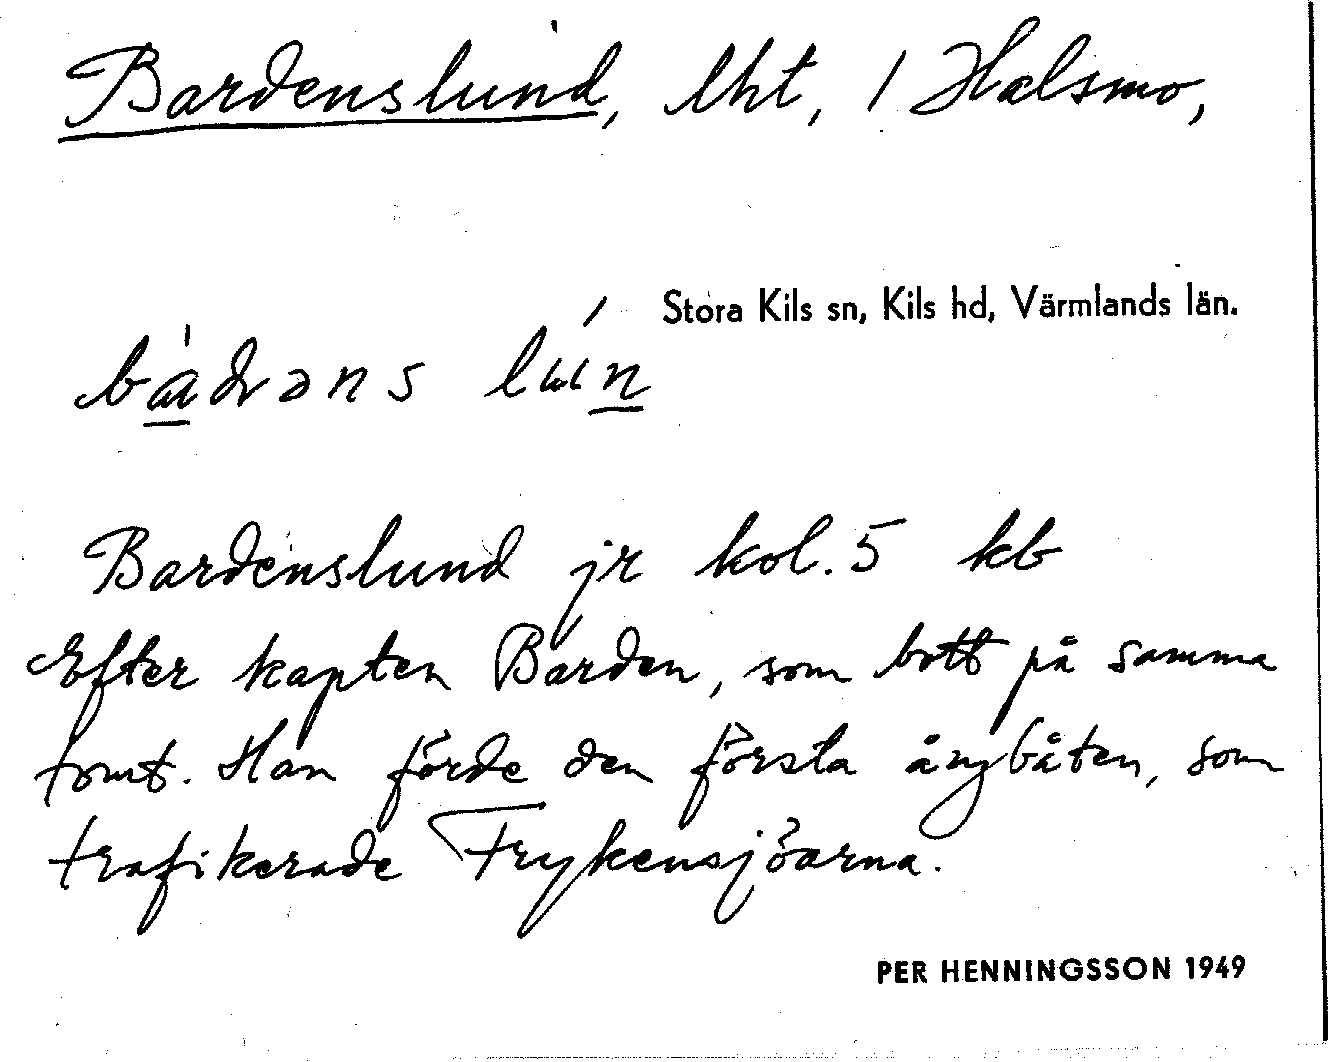 Bardenslund, lht, 1 Halsmo,
Stora Kils sn, Kils hd, Värmlands län.
Bardenslund jr kol. 5 kb
Efter kapten Barden, som bott på samma
tomt. Han förde den första ångbåten, som
trafikerade Frykensjöarna.
PER HENNINGSSON 1949